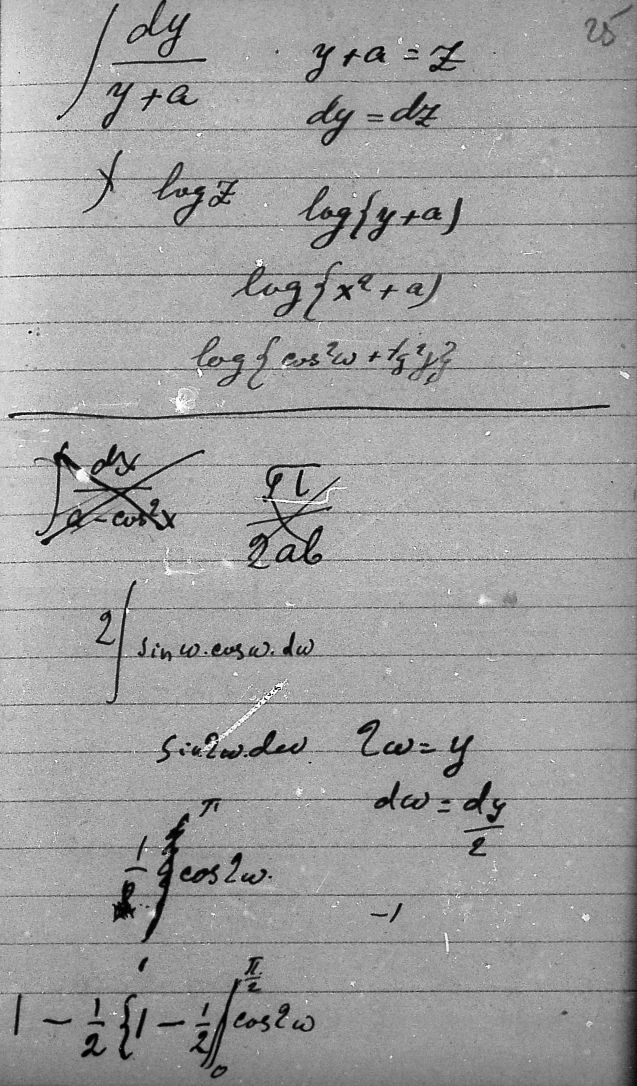 25
∫ dy/(y+a)   y+a = z
dy = dz
log z   log{y+a}
log{x²+a}
log{cos²ω + tg²
∫ dx/(a-cos²x)   π/2ab
2∫ sin ω. cos ω. dω
sin 2ω. dω   2ω = y
dω = dy/2
π
1/2 ∫ cos 2ω.
-1
1 - 1/2 {1 - 1/2 ∫₀^{π/2} cos 2ω